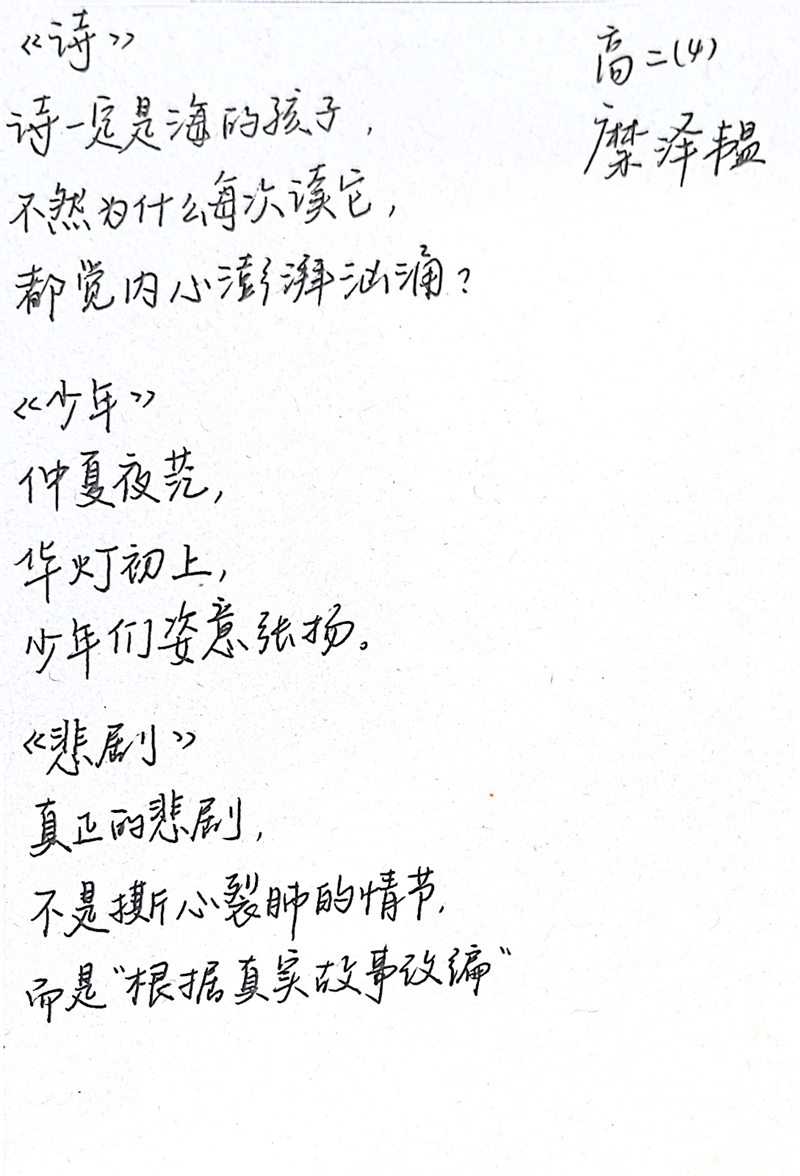 《诗》
高二(4)
诗一定是海的孩子，
糜泽韫
不然为什么每次读它，
都觉内心澎湃汹涌？
《少年》
仲夏夜茫，
华灯初上，
少年们姿意张扬。
《悲剧》
真正的悲剧，
不是撕心裂肺的情节，
而是"根据真实故事改编"